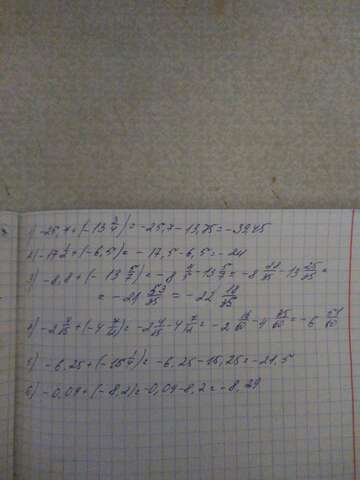 1) -25,7 + (-13 3/4) = -25,7 - 13,75 = -39,45
2) -17 1/2 + (-6,5) = -17,5 - 6,5 = -24
3) -8,8 + (-13 5/7) = -8 4/5 - 13 5/7 = -8 28/35 - 13 25/35 =
= -21 53/35 = -22 18/35
4) -2 4/15 + (-4 7/12) = -2 4/15 - 4 7/12 = -2 16/60 - 4 35/60 = -6 51/60
5) -6,25 + (-15 1/4) = -6,25 - 15,25 = -21,5
6) -0,09 + (-8,2) = -0,09 - 8,2 = -8,29